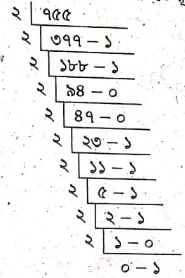 ২ ৭৫৫
২ ৩৭৭ – ১
২ ১৮৮ – ১
২ ৯৪ – ০
২ ৪৭ – ০
২ ২৩ – ১
২ ১১ – ১
২ ৫ – ১
২ ২ – ১
২ ১ – ০
০ – ১